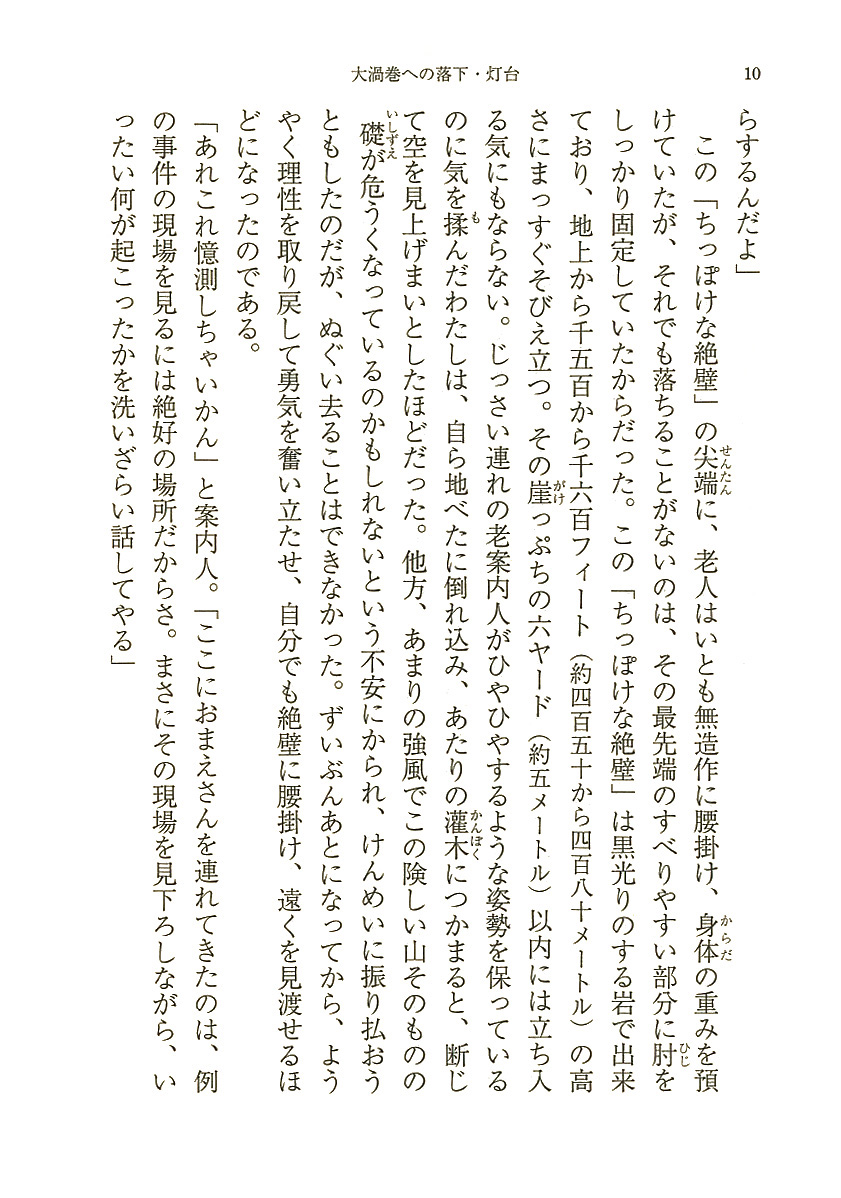 大渦巻への落下・灯台
10
らするんだよ」
この「ちっぽけな絶壁」の尖端に、老人はいとも無造作に腰掛け、身体の重みを預
けていたが、それでも落ちることがないのは、その最先端のすべりやすい部分に肘を
しっかり固定していたからだった。この「ちっぽけな絶壁」は黒光りのする岩で出来
ており、地上から千五百から千六百フィート（約四百五十から四百八十メートル）の高
さにまっすぐそびえ立つ。その崖っぷちの六ヤード（約五メートル）以内には立ち入
る気にもならない。じっさい連れの老案内人がひやひやするような姿勢を保っている
のに気を揉んだわたしは、自ら地べたに倒れ込み、あたりの灌木につかまると、断じ
て空を見上げまいとしたほどだった。他方、あまりの強風でこの険しい山そのものの
礎が危うくなっているのかもしれないという不安にかられ、けんめいに振り払おう
ともしたのだが、ぬぐい去ることはできなかった。ずいぶんあとになってから、よう
やく理性を取り戻して勇気を奮い立たせ、自分でも絶壁に腰掛け、遠くを見渡せるほ
どになったのである。
「あれこれ憶測しちゃいかん」と案内人。「ここにおまえさんを連れてきたのは、例
の事件の現場を見るには絶好の場所だからさ。まさにその現場を見下ろしながら、い
ったい何が起こったかを洗いざらい話してやる」